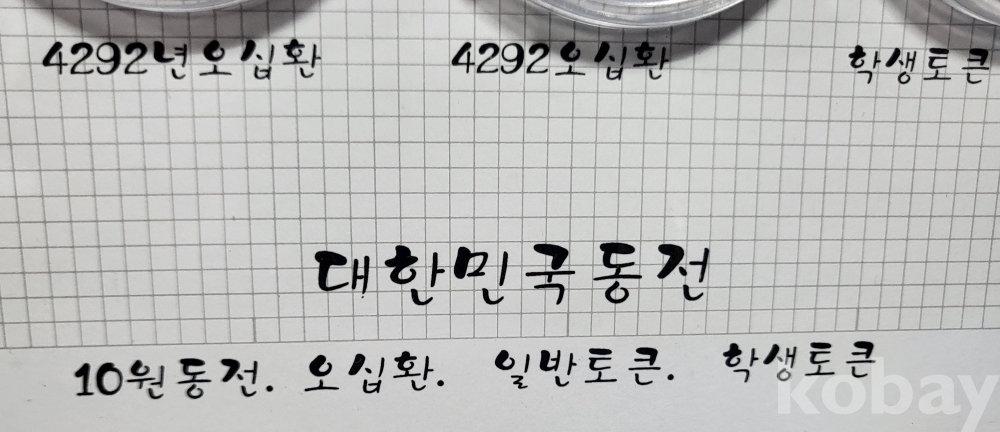 4292년오십환 4292오십환 학생토큰
대한민국동전
10원동전. 오십환. 일반토큰. 학생토큰
kobay